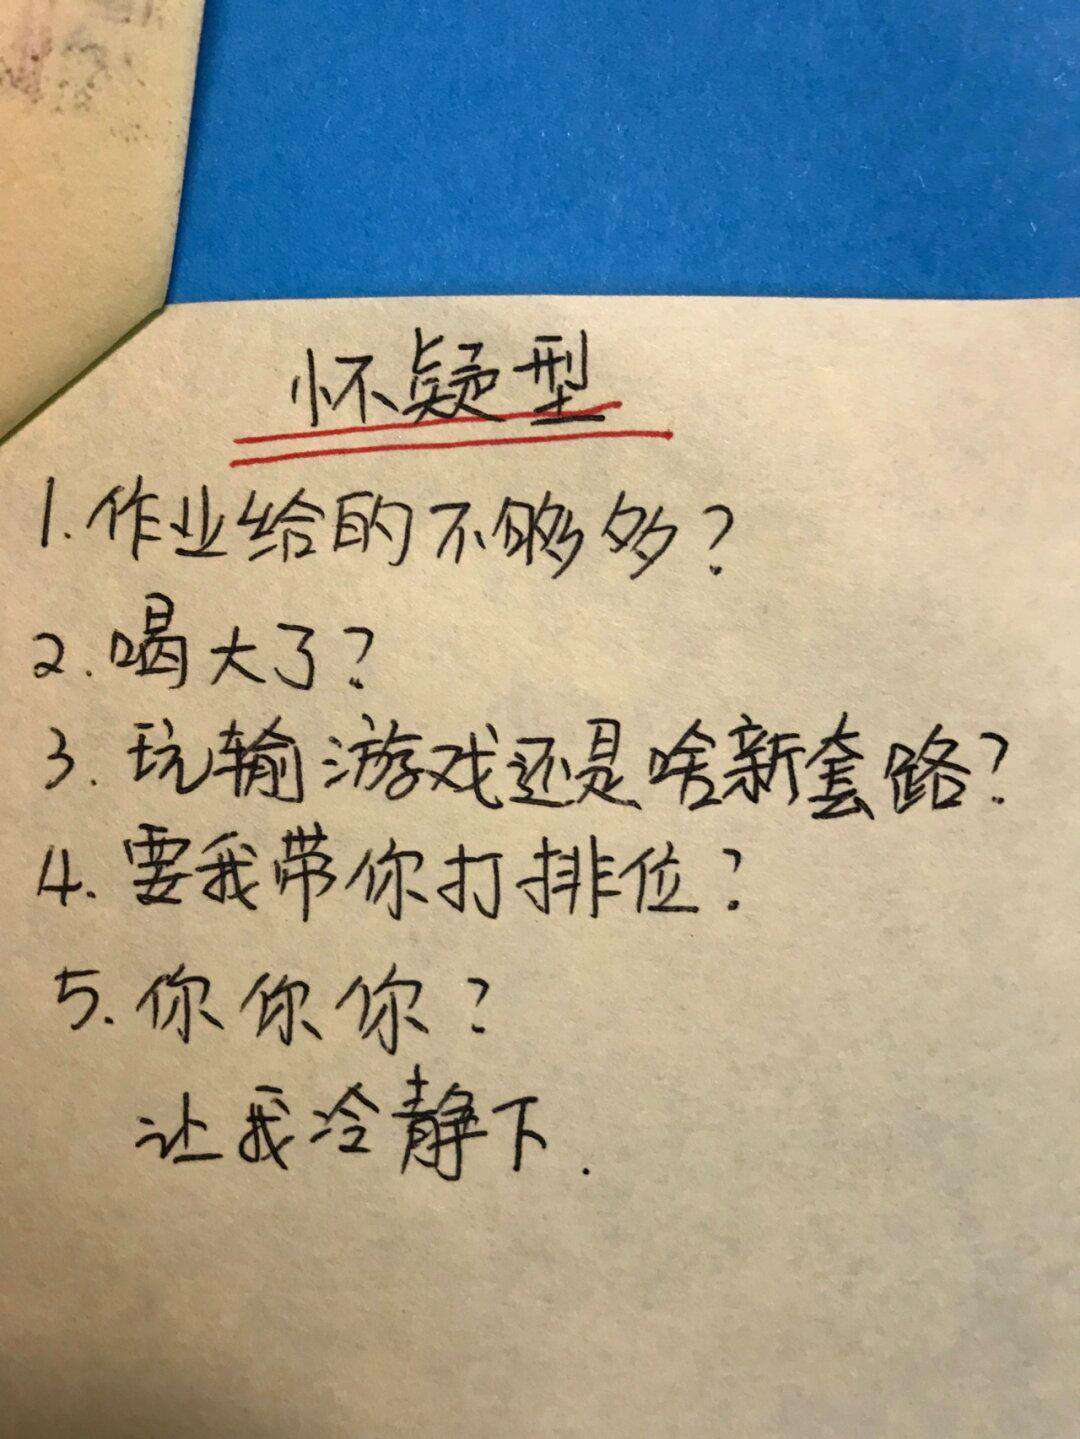 怀疑型
1.作业给的不够多?
2.喝大了?
3.玩输游戏还是啥新套路?
4.要我带你打排位?
5.你你你?
让我冷静下.